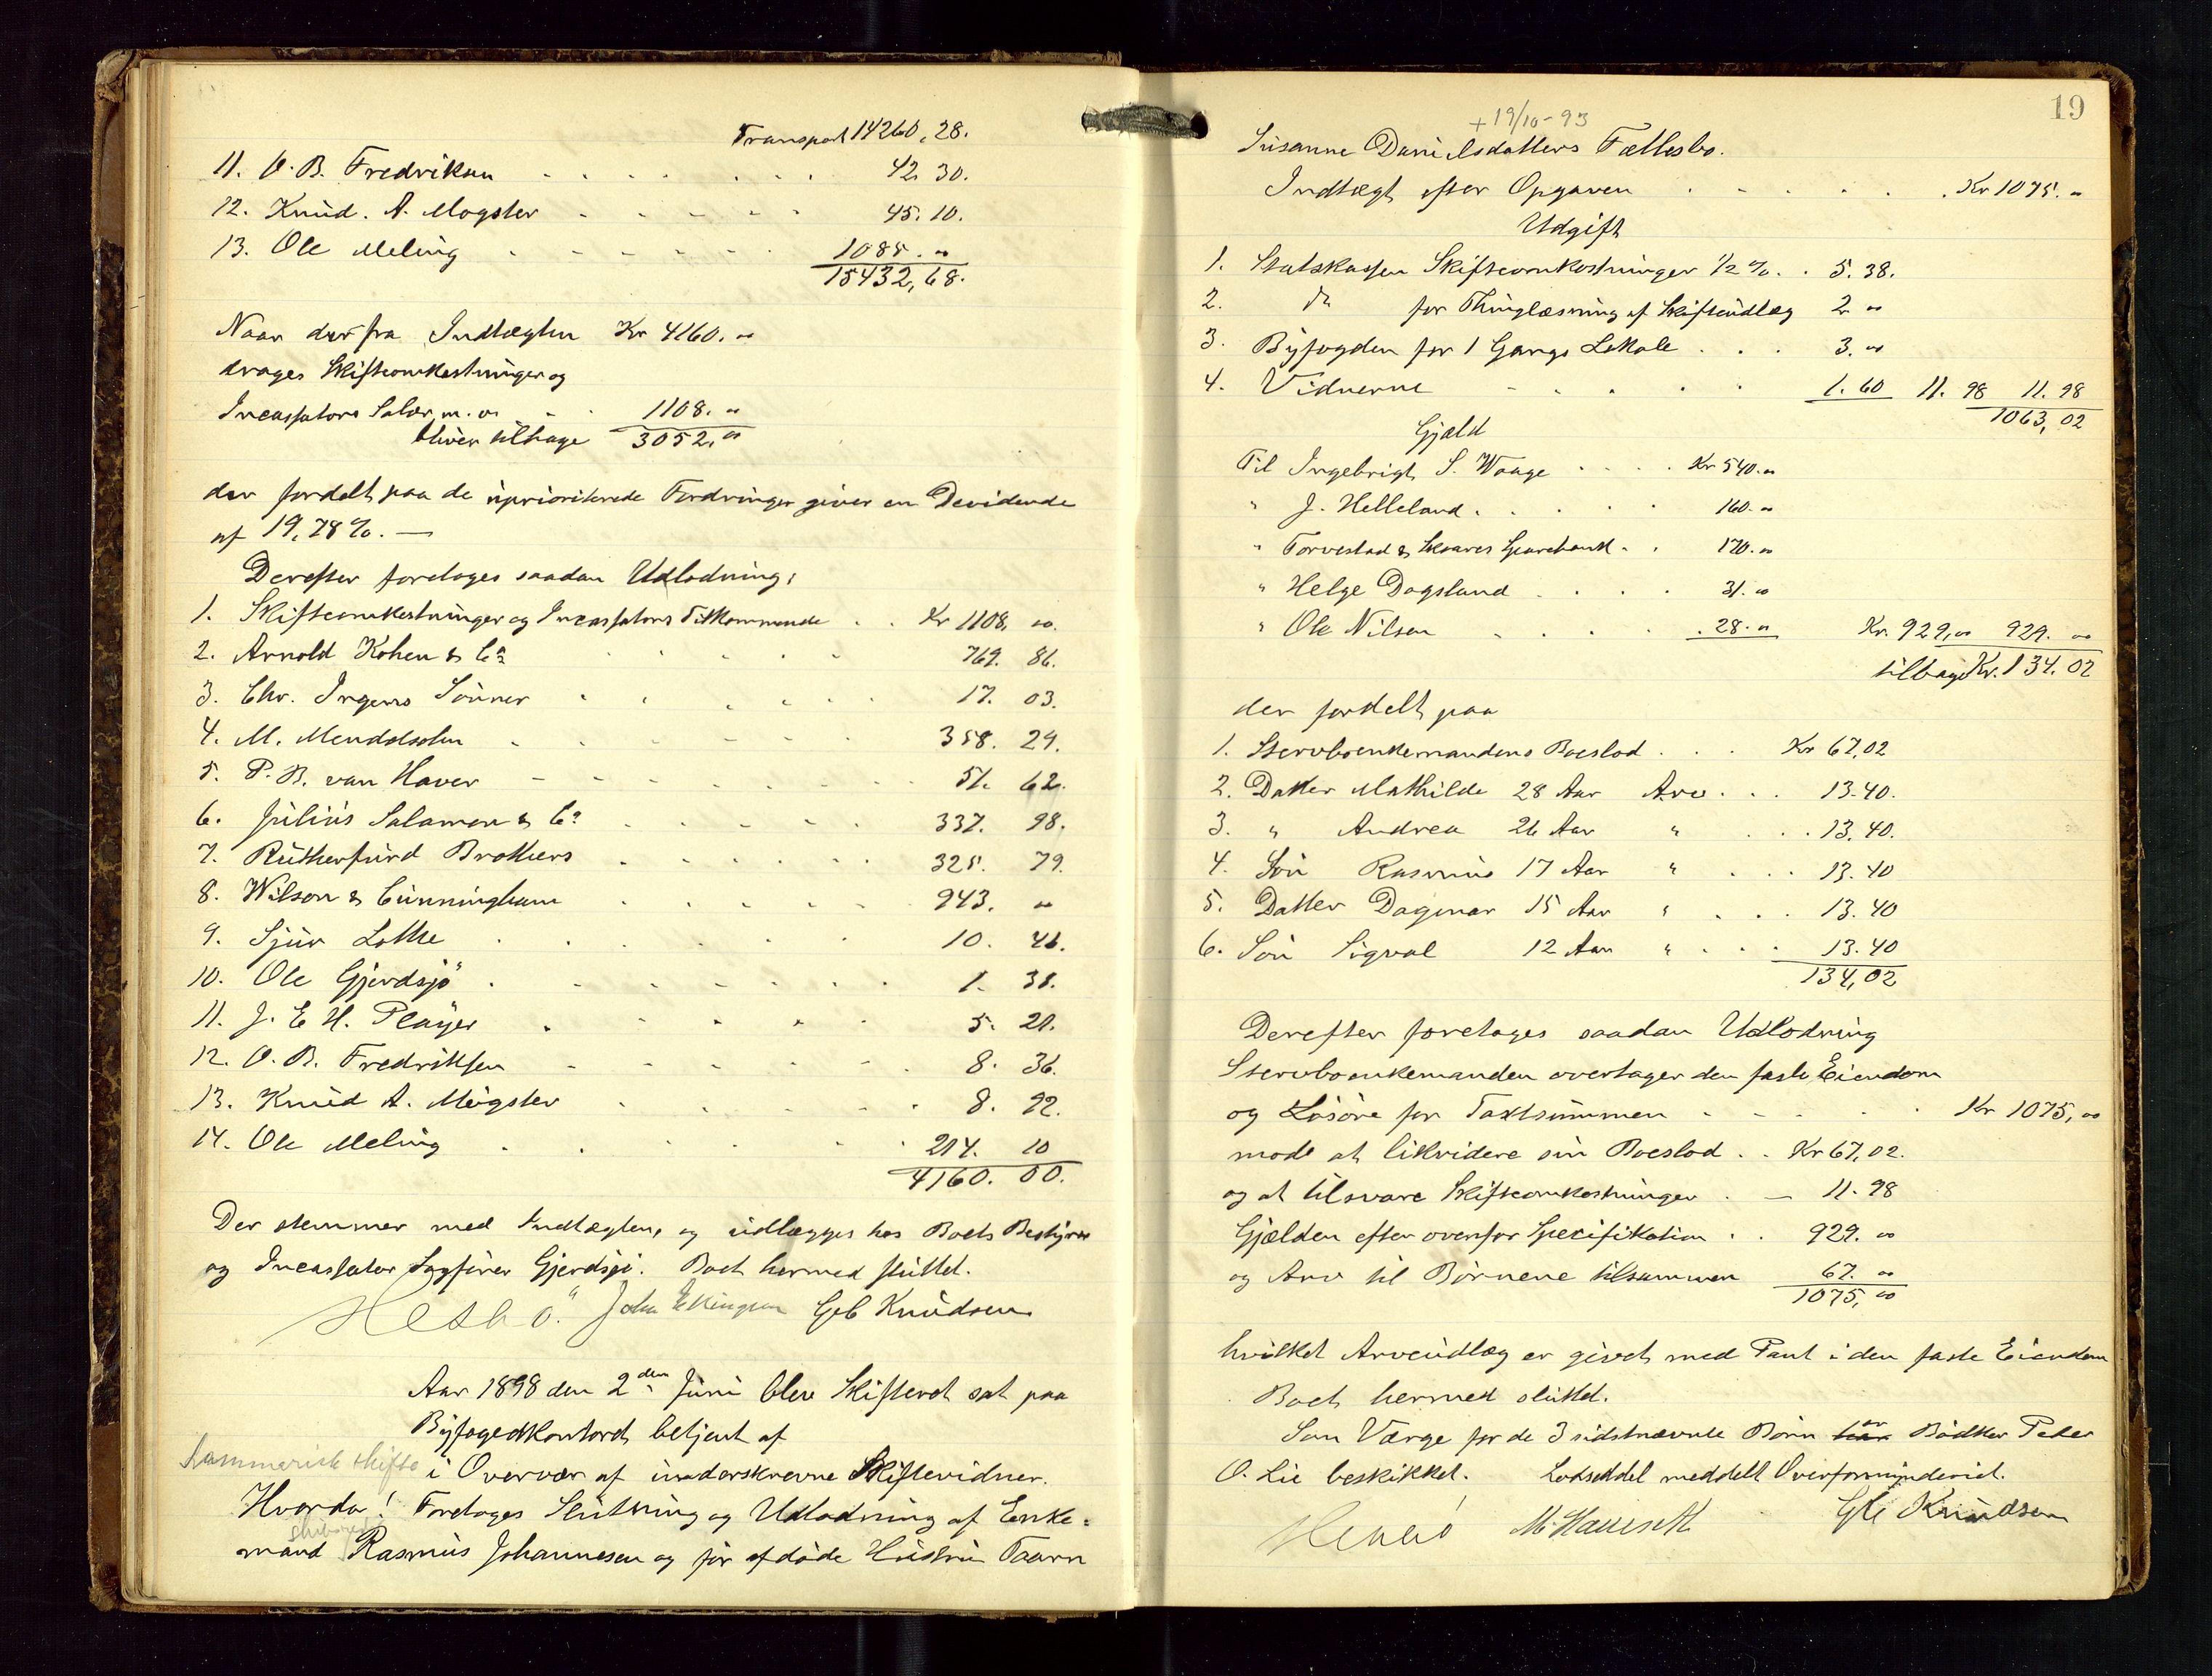 Transport 14260,28.
11. O. B. Fredriksen 42. 30.
12. Knud. A. Møgster 45. 10.
13. Ole Meling 1085. "
15432,68.
Naar der fra Indtægten Kr 4160. "
drages Skifteomkostninger og
Incassators Salær m. v. 1108. "
bliver tilbage 3052. "
der fordelt paa de uprioriterede Fordringer giver en Devidende
af 19,78 %. —
Derefter foretages saadan Udlodning:
1. Skifteomkostninger og Incassators Tilkommende Kr 1108, "
2. Arnold Kohen & Co 769. 86.
3. Chr. Irgens Sønner 17. 03.
4. M. Mendelsohn 358. 29.
5. P. B. van Haver 51. 62.
6. Julius Salamon & Co 337. 98.
7. Rutherfurd Brothers 325. 79.
8. Wilson & Cunningham 943. "
9. Sjur Lothe 10. 46.
10. Ole Gjerdsjø 1. 38.
11. J. E. H. Player 5. 21.
12. O. B. Fredriksen 8. 36.
13. Knud A. Møgster 8. 92.
14. Ole Meling 214. 10
4160. 00.
Der stemmer med Indtægten, og udlægges hos Boets Bestyrer
og Incassator Sagfører Gjerdsjø. Boet hermed sluttet.
Hesbö. John Ellingsen Gab Knudsen
Aar 1898 den 2den Juni blev Skifteret sat paa
Byfogedkontoret betjent af
Summarisk skifte i Overvær af underskrevne Skiftevidner.
Hvorda! Foretoges Slutning og Udlodning af Enke=
mand Rasmus Johannesen og før afdøde Hustru Taarn
19
+ 19/10-93
Susanne Danielsdatters Fællesbo.
Indtægt efter Opgaven Kr 1075. "
Udgift
1. Statskassen Skifteomkostninger 1/2 %. 5. 38.
2. do for Thinglæsning af Skifteudlæg 2 "
3. Byfogden for 1 Gangs Lokale 3. "
4. Vidnerne 1. 60 11. 98 11. 98
1063,02
Gjæld
Til Ingebrigt S. Waage Kr 540. "
" J. Helleland 160. "
" Torvestad & Skaares Sparebank 170. "
" Helge Dagsland 31. "
" Ole Nilsen 28. " Kr. 929, " 929. "
tilbage Kr. 134. 02
der fordelt paa
1. Stervboenkemandens Boeslod Kr 67,02
2. Datter Mathilde 28 Aar Arv 13.40.
3. " Andrea 26 Aar " 13,40.
4. Søn Rasmus 17 Aar " 13.40
5. Datter Dagmar 15 Aar " 13.40
6. Søn Sigval 12 Aar " 13.40
134,02
Derefter foretages saadan Udlodning
Stervboenkemanden overtager den faste Eiendom
og Løsøre for Taxtsummen Kr 1075, "
mod at likvidere sin Boeslod Kr 67,02.
og at tilsvare Skifteomkostninger — 11. 98
Gjælden efter ovenfor Specifikation 929. "
og Arv til Børnene tilsammen 67. "
1075, "
hvilket Arveudlæg er givet med Pant i den faste Eiendom
Boet hermed sluttet.
Som Værge for de 3 sidstnævnte Børn er Bødker Peder
O. Lie beskikket. Lodseddel meddelt Overformynderiet.
Hesbö M. Hauseth Gab Knudsen